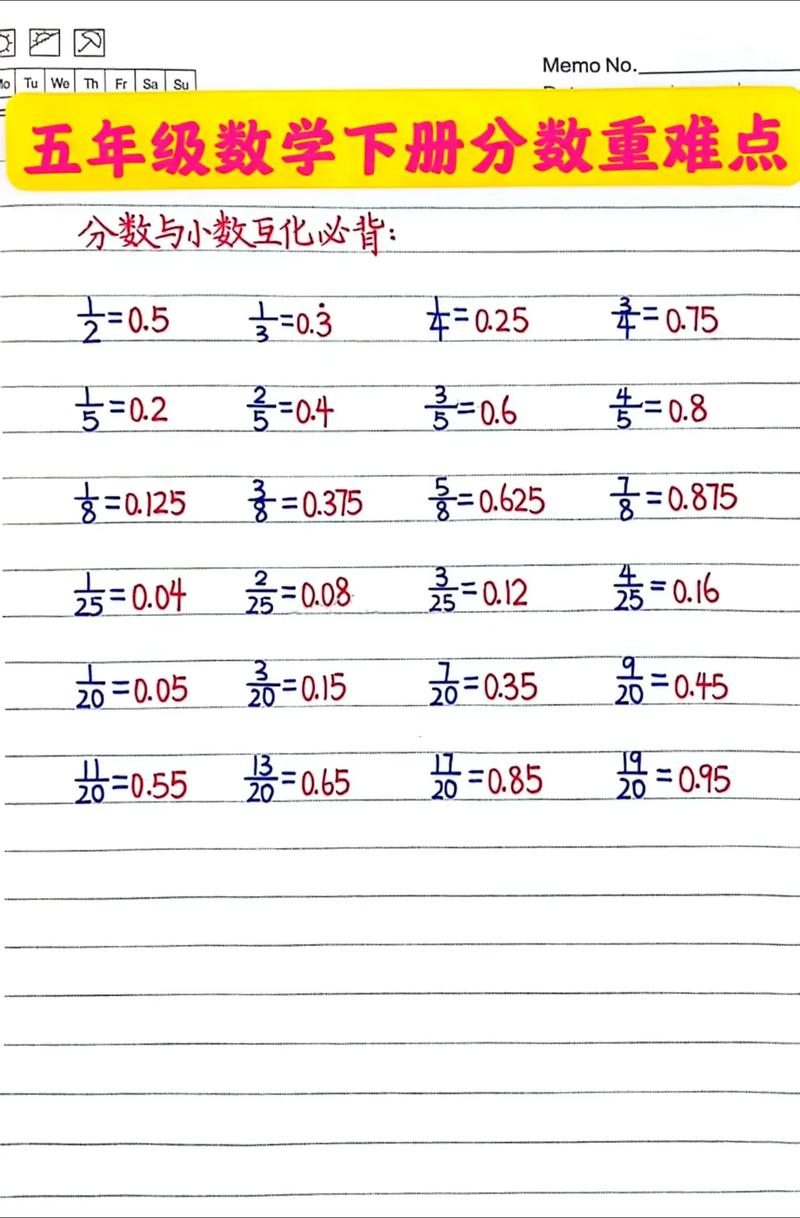 Memo No.
Mo Tu We Th Fr Sa Su
五年级数学下册分数重难点
分数与小数互化必背:
1/2=0.5 1/3=0.3̇ 1/4=0.25 3/4=0.75
1/5=0.2 2/5=0.4 3/5=0.6 4/5=0.8
1/8=0.125 3/8=0.375 5/8=0.625 7/8=0.875
1/25=0.04 2/25=0.08 3/25=0.12 4/25=0.16
1/20=0.05 3/20=0.15 7/20=0.35 9/20=0.45
11/20=0.55 13/20=0.65 17/20=0.85 19/20=0.95